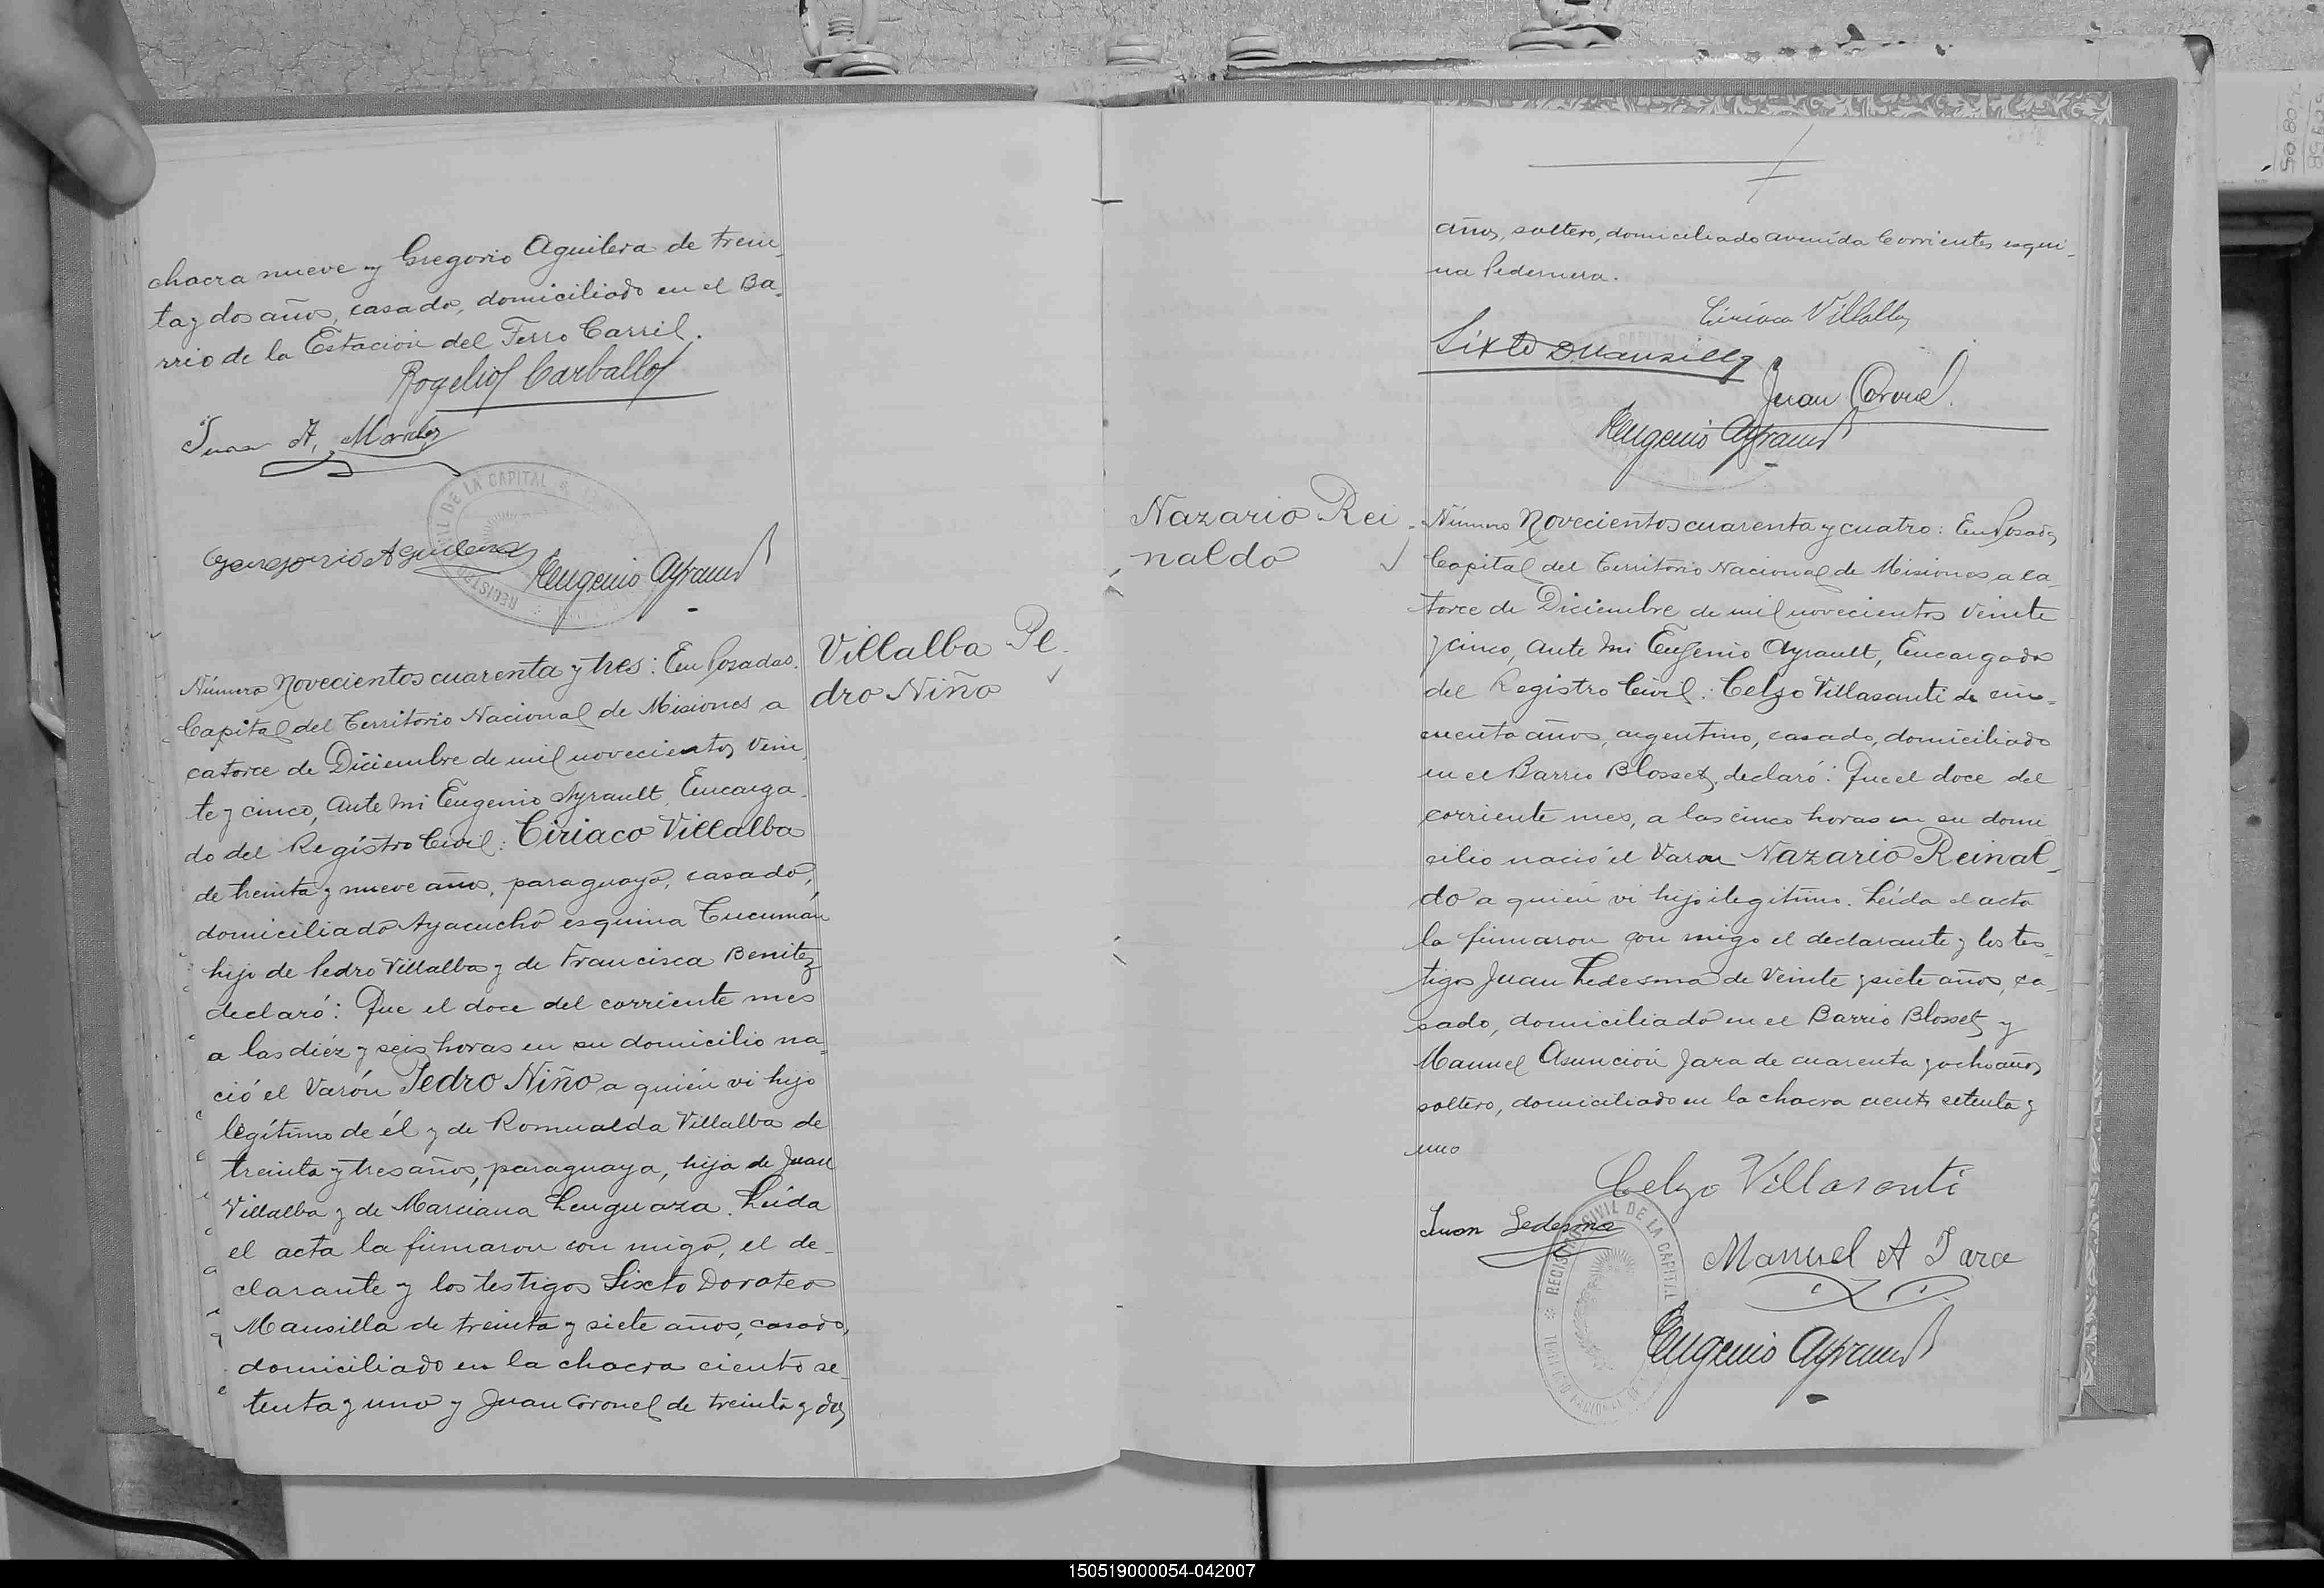 chacra nueve y Gregorio Aguilera de trein
ta y dos años, casado, domiciliado en el Ba-
rrio de la Estación del Ferro Carril.
Rogelio Carballo
Juan A. Mendez
Gregorio Aguilera
Eugenio Ayrault
Número Novecientos cuarenta y tres: En Posadas
Capital del Territorio Nacional de Misiones a
catorce de Diciembre de mil novecientos vein
te y cinco, ante mi Eugenio Ayrault, Encarga
do del Registro Civil: Ciriaco Villalba
de treinta y nueve años, paraguayo, casado,
domiciliado Ayacucho esquina Tucumán
hijo de Pedro Villalba y de Francisca Benitez
declaró: Que el doce del corriente mes
a las diéz y seis horas en su domicilio na-
ció el Varón Pedro Niño a quién vi hijo
legítimo de él y de Romualda Villalba de
treinta y tres años, paraguaya, hija de Juan
Villalba y de Marciana Lenguaza. Leída
el acta la firmaron con migo, el de-
clarante y los testigos Sixto Doroteo
Mansilla de treinta y siete años, casado,
domiciliado en la chacra ciento se-
tenta y uno y Juan Coronel de treinta y dos
Villalba Pe-
dro Niño
años, soltero, domiciliado avenida Corrientes esqui-
na Pedernera.
Ciriaco Villalba
Sixto D Mansilla
Juan Coronel.
Eugenio Ayrault
Nazario Rei-
naldo
Número Novecientos cuarenta y cuatro: En Posadas
Capital del Territorio Nacional de Misiones a ca-
torce de Diciembre de mil novecientos veinte
y cinco, ante mi Eugenio Ayrault, Encargado
del Registro Civil: Celzo Villasanti de cin-
cuenta años, argentino, casado, domiciliado
en el Barrio Blosset, declaró: Que el doce del
corriente mes, a las cinco horas en su domi
cilio nació el Varon Nazario Reinal-
do a quién vi hijo ilegítimo. Leída el acta
la firmaron con migo el declarante y los tes-
tigos Juan Ledesma de veinte y siete años, ca-
sado, domiciliado en el Barrio Blosset y
Manuel Asunción Jara de cuarenta y ocho años
soltero, domiciliado en la chacra ciento setenta y
uno
Celzo Villasanti
Juan Ledesma
REGISTRO CIVIL DE LA CAPITAL
Manuel A Jara
Eugenio Ayrault
150519000054-042007